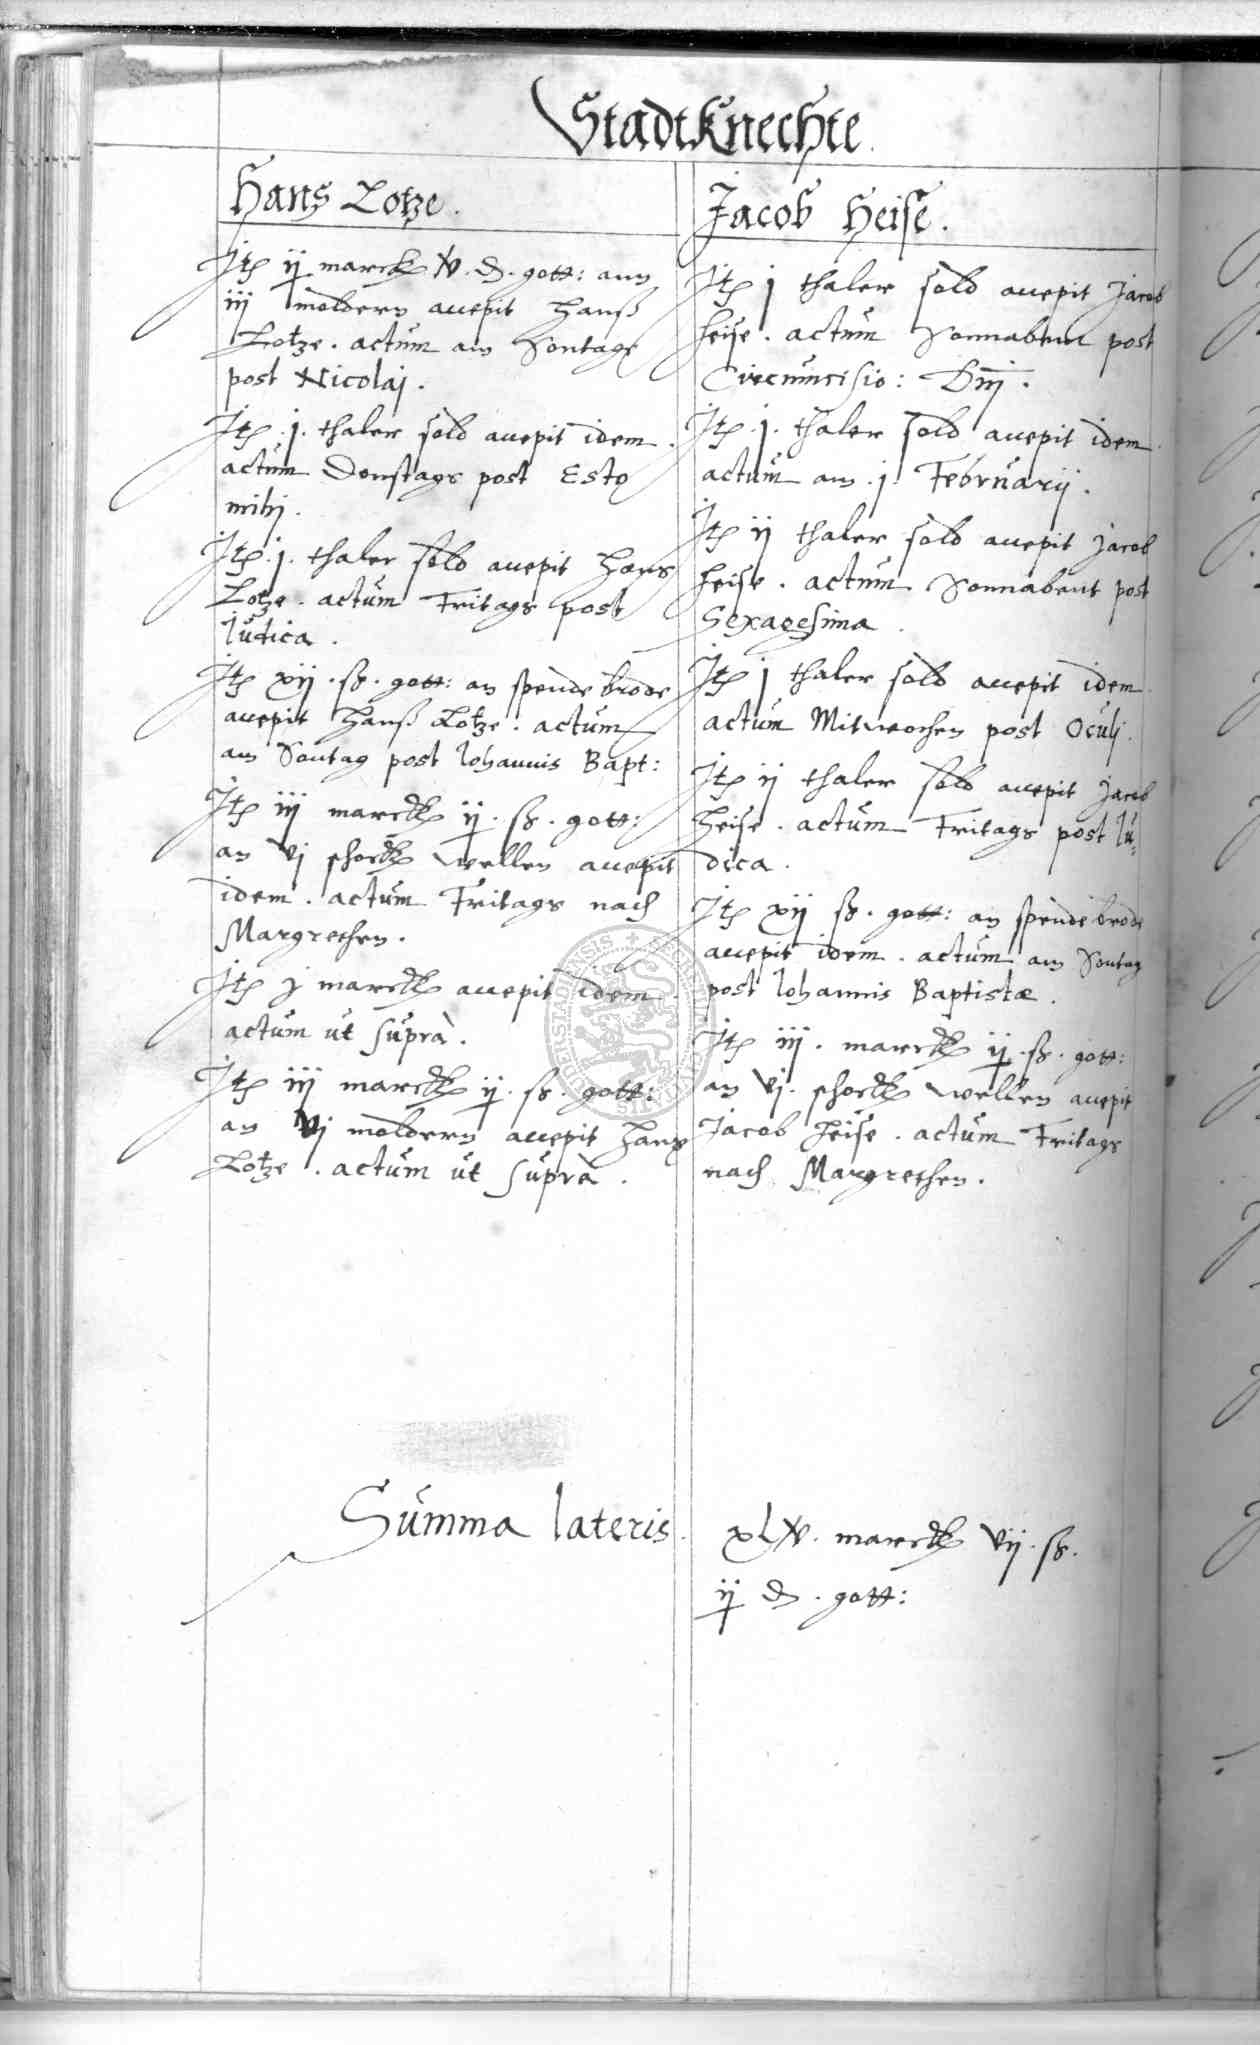 Stadtknechte.
Hans Lotze.
Jtem ij marck v. d. gott: ann
iij moldern accepit Hanß
Lotze. actum am Sontage
post Nicolaj.
Jtem .j. thaler sold accepit idem.
actum Donstags post Esto
mihj.
Jtem .j. thaler sold accepit Hans
Lotze. actum Fritags post
Iudica.
Jtem xij. ß. gott: an spende brode
accepit Hanß Lotze. actum
am Sontag post Iohannis Bapt:
Jtem iij marck ij. ß. gott:
an vj schock wellen accepit
idem. actum Fritags nach
Margrethen.
Jtem j marck accepit idem.
actum ut suprà.
Jtem iij marck ij. ß. gott:
an vj moldern accepit Hans
Lotze. actum ut suprà.
Jacob Heise.
Jtem j thaler sold accepit Jacob
Heise. actum Sonnabent post
Circumcisio: Dnj.
Jtem .j. thaler sold accepit idem.
actum am .j. Februarij.
Jtem ij thaler sold accepit Jacob
Heise. actum Sonnabent post
Sexagesima.
Jtem j thaler sold accepit idem.
actum Mitwochen post Oculj.
Jtem ij thaler sold accepit Jacob
Heise. actum Fritags post Iu=
dica.
Jtem xij ß. gott: an spende brode
accepit idem. actum am Sontag
post Iohannis Baptistæ.
Jtem iij. marck ij. ß. gott:
an vj. schock wellen accepit
Jacob Heise. actum Fritags
nach Margrethen.
Summa lateris. xlv. marck vij. ß.
ij d. gott: